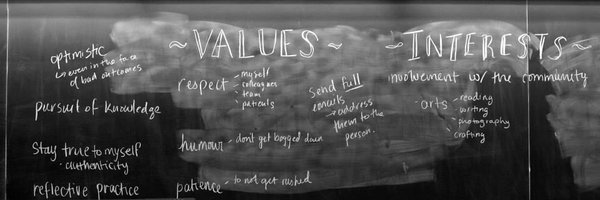 ~VALUES~
optimistic
↳ even in the face
of bad outcomes
pursuit of knowledge
Stay true to myself
- authenticity
reflective practice
respect
- myself
- colleagues
- team
- patients
humour - don't get bogged down
patience - to not get rushed
send full
emails
→ address
them to the
person.
~INTERESTS~
involvement w/ the community
arts
- reading
- writing
- photography
- crafting